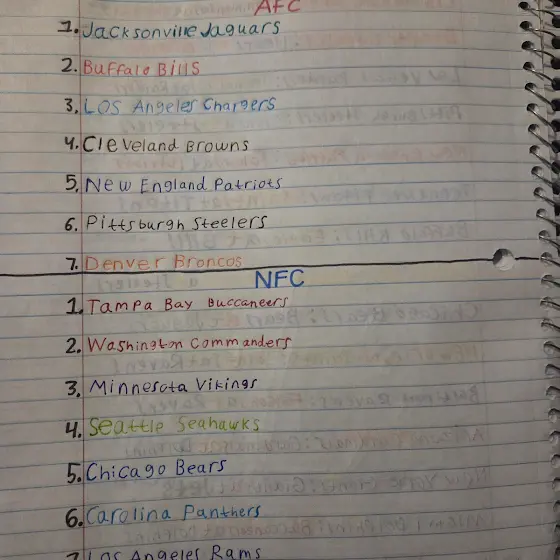 AFC
1. Jacksonville Jaguars
2. Buffalo Bills
3. Los Angeles Chargers
4. Cleveland Browns
5. New England Patriots
6. Pittsburgh Steelers
7. Denver Broncos
NFC
1. Tampa Bay Buccaneers
2. Washington Commanders
3. Minnesota Vikings
4. Seattle Seahawks
5. Chicago Bears
6. Carolina Panthers
7. Los Angeles Rams